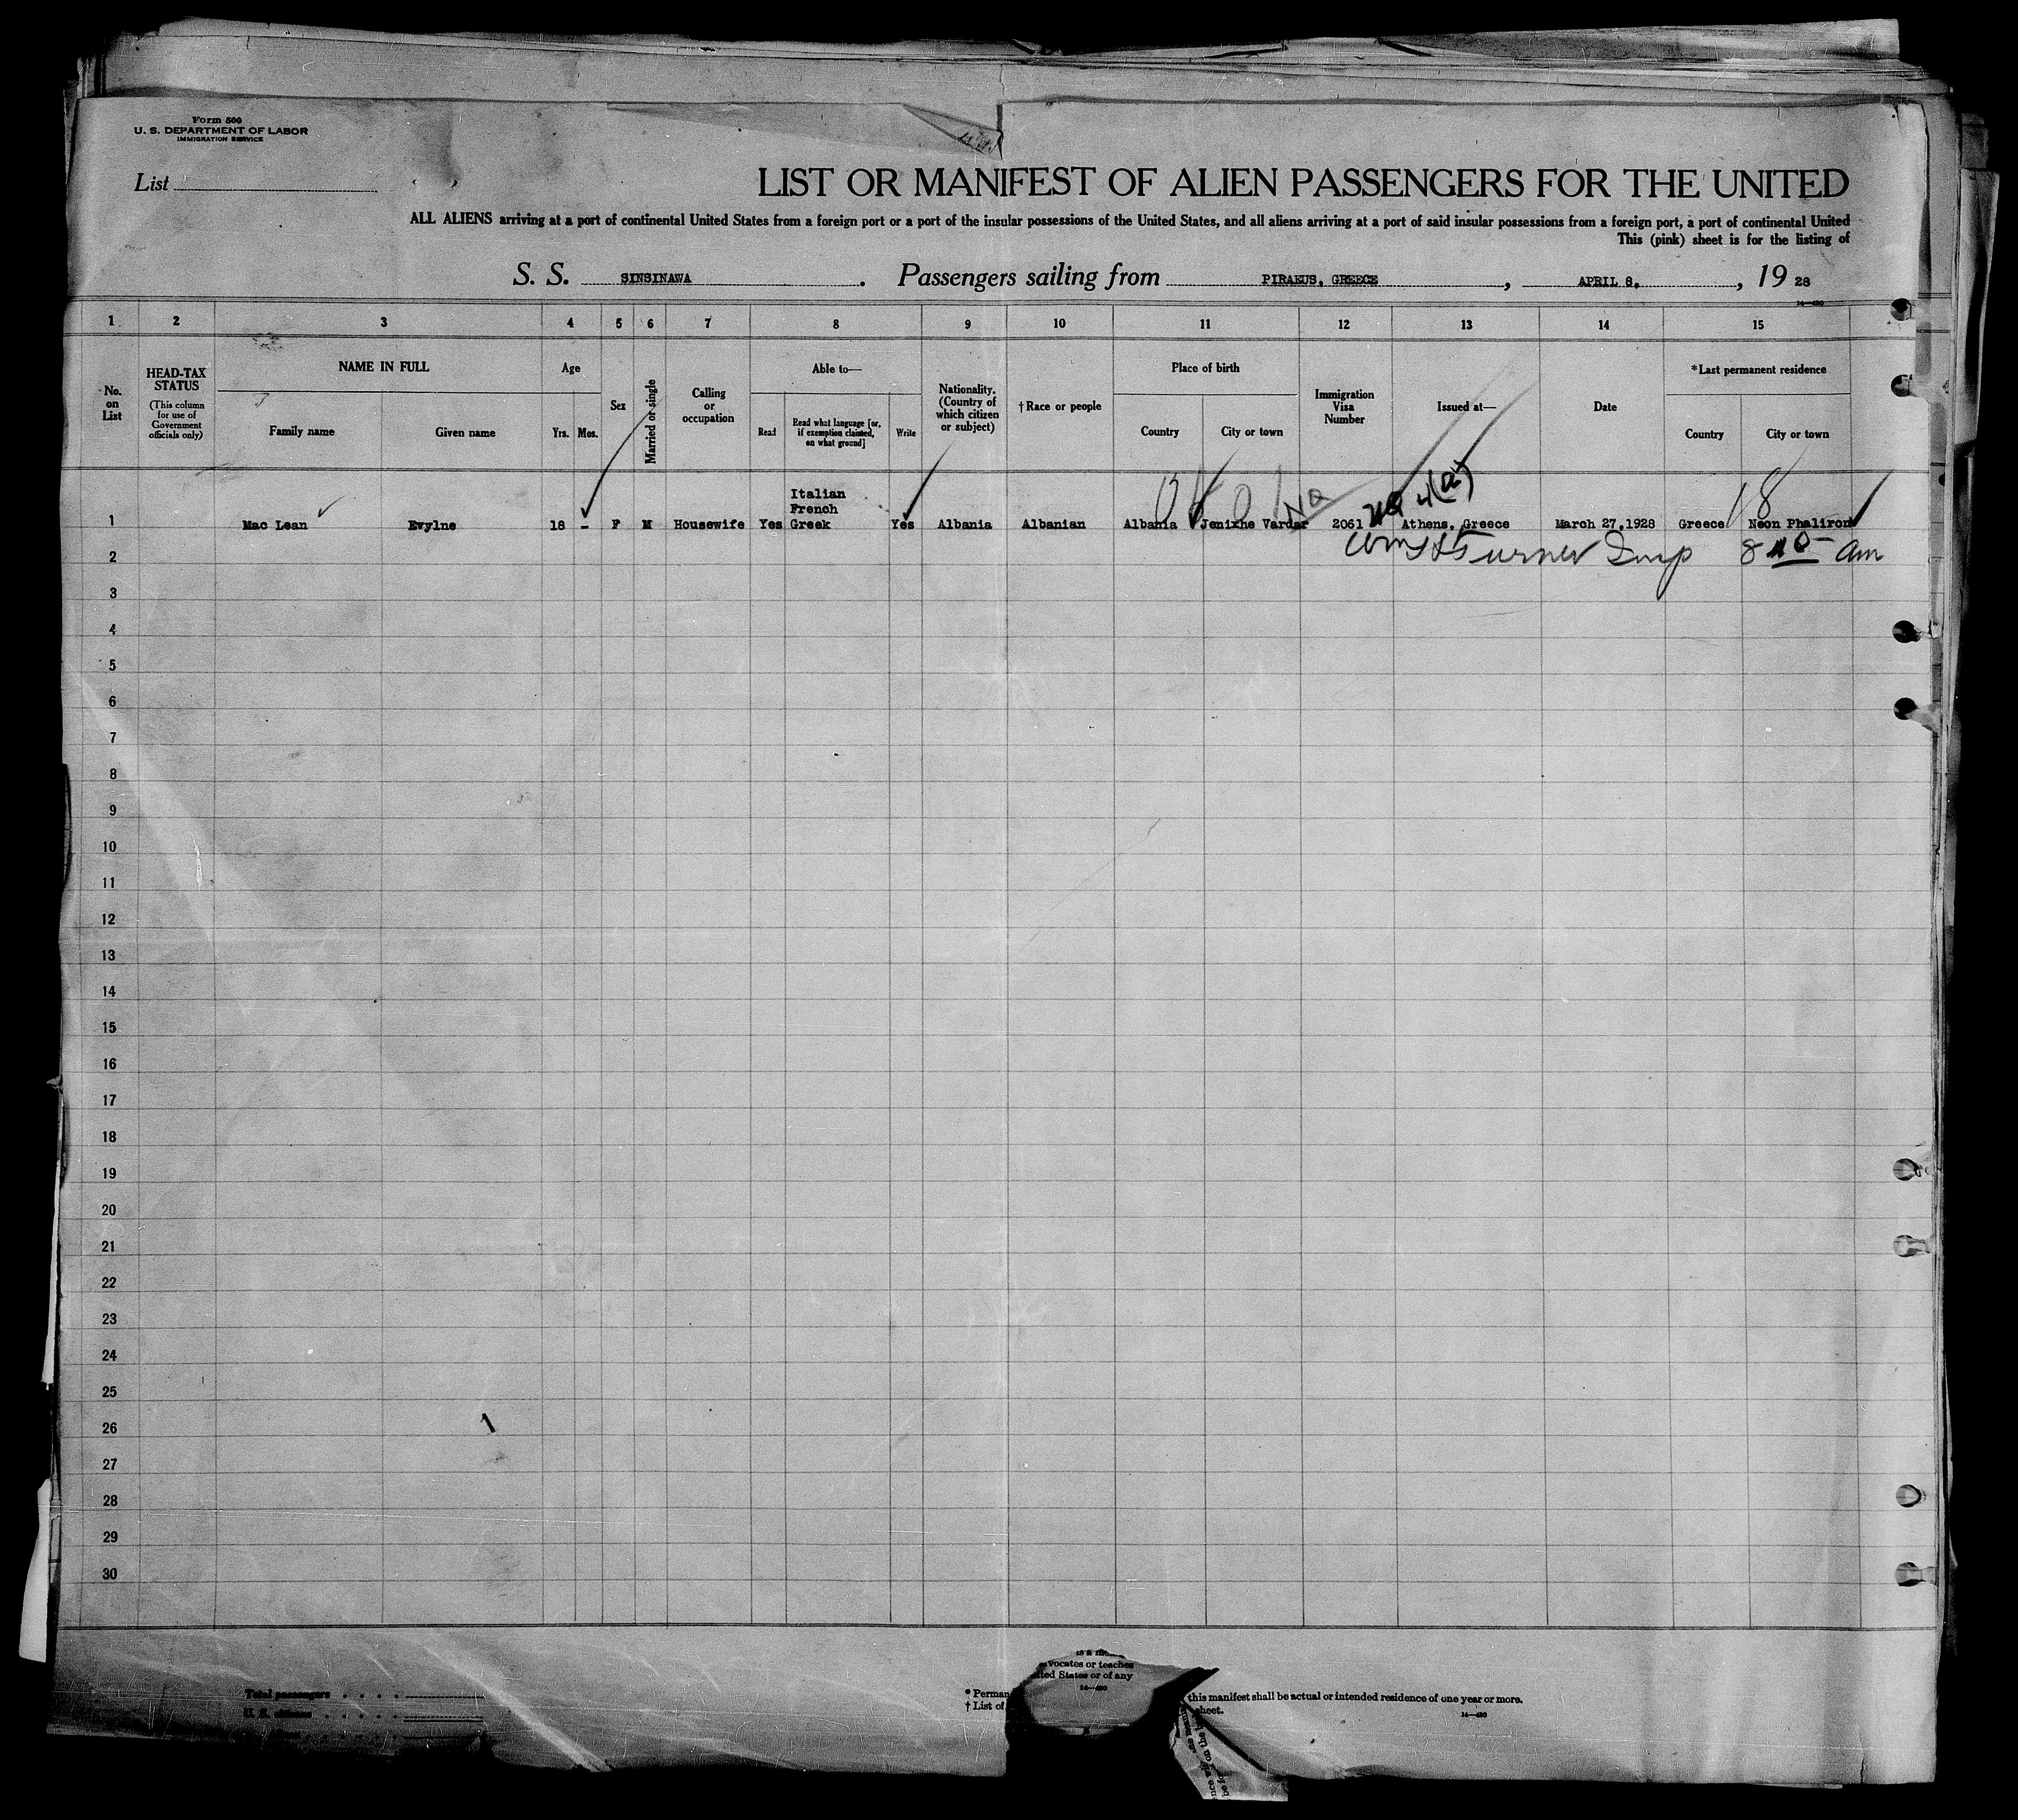 Form 500
U. S. DEPARTMENT OF LABOR
IMMIGRATION SERVICE
List
LIST OR MANIFEST OF ALIEN PASSENGERS FOR THE UNITED
ALL ALIENS arriving at a port of continental United States from a foreign port or a port of the insular possessions of the United States, and all aliens arriving at a port of said insular possessions from a foreign port, a port of continental United
This (pink) sheet is for the listing of
S. S. SINSINAWA . Passengers sailing from PIRAEUS, GREECE , APRIL 8, , 19 28
14—430
1 2 3 4 5 6 7 8 9 10 11 12 13 14 15
No. on List
HEAD-TAX STATUS
(This column for use of Government officials only)
NAME IN FULL
Family name Given name
Age
Yrs. Mos.
Sex
Married or single
Calling or occupation
Able to—
Read
Read what language [or, if exemption claimed, on what ground]
Write
Nationality. (Country of which citizen or subject)
† Race or people
Place of birth
Country City or town
Immigration Visa Number
Issued at—
Date
* Last permanent residence
Country City or town
NQ 4(a)
18
Italian
French
1 Mac Lean Evylne 18 - F M Housewife Yes Greek Yes Albania Albanian Albania Jenixhe Vardar 2061 Athens, Greece March 27,1928 Greece Neon Phaliron
Turner Insp 8 am
2
3
4
5
6
7
8
9
10
11
12
13
14
15
16
17
18
19
20
21
22
23
24
25
26
27
28
29
30
Total passengers
U. S. citizens
vocates or teaches
ted States or of any
14—430
* Perman
† List of
this manifest shall be actual or intended residence of one year or more.
sheet.
14—430